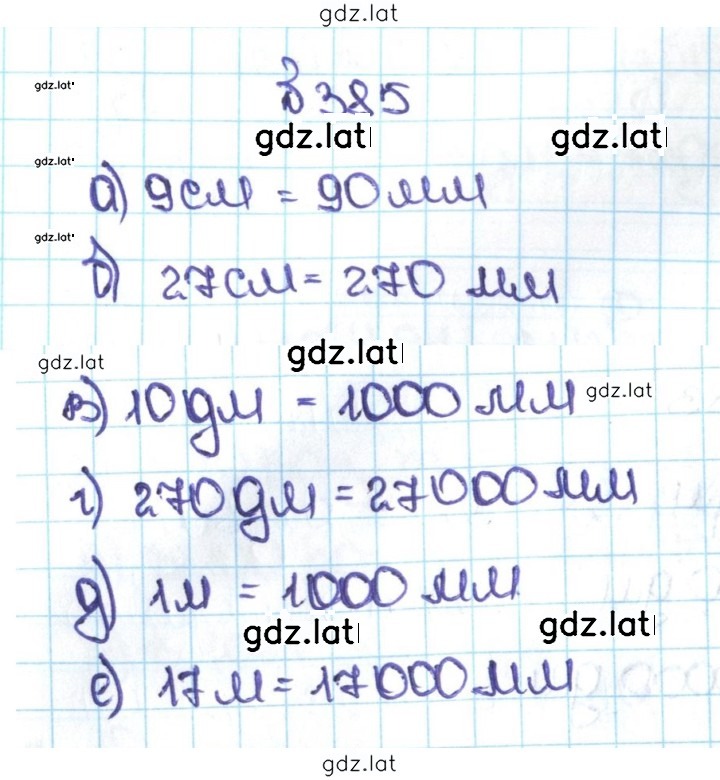 gdz.lat
gdz.lat
385
gdz.lat gdz.lat
gdz.lat
а) 9см = 90мм
gdz.lat
б) 27см = 270 мм
gdz.lat gdz.lat
в) 10дм = 1000 мм gdz.lat
г) 270дм = 27000мм
д) 1м = 1000 мм
gdz.lat gdz.lat
е) 17м = 17000мм
gdz.lat